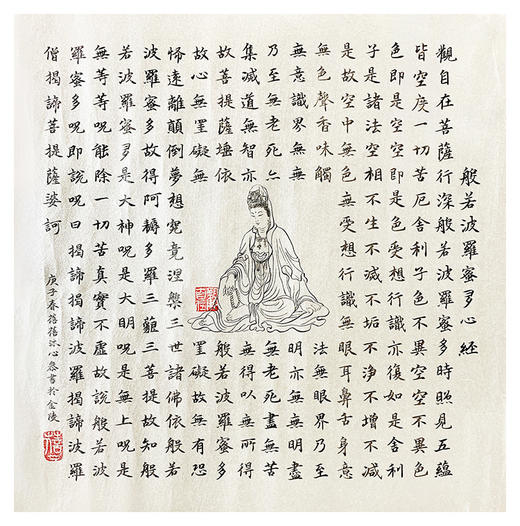 般若波羅蜜多心經
觀自在菩薩行深般若波羅蜜多時照見五蘊
皆空度一切苦厄舍利子色不異空空不異色
色即是空空即是色受想行識亦復如是舍利
子是諸法空相不生不滅不垢不淨不增不減
是故空中無色無受想行識無眼耳鼻舌身意
無色聲香味觸
法無眼界乃至
無意識界無無
明亦無無明盡
乃至無老死亦
無老死盡無苦
集滅道無智亦
無得以無所得
故菩提薩埵依
般若波羅蜜多
故心無罣礙無
罣礙故無有恐
怖遠離顛倒夢想究竟涅槃三世諸佛依般若
波羅蜜多故得阿耨多羅三藐三菩提故知般
若波羅蜜多是大神呪是大明呪是無上呪是
無等等呪能除一切苦真實不虛故說般若波
羅蜜多呪即說呪曰揭諦揭諦波羅揭諦波羅
僧揭諦菩提薩婆訶
庚子春禧禧沐心恭書於金陵